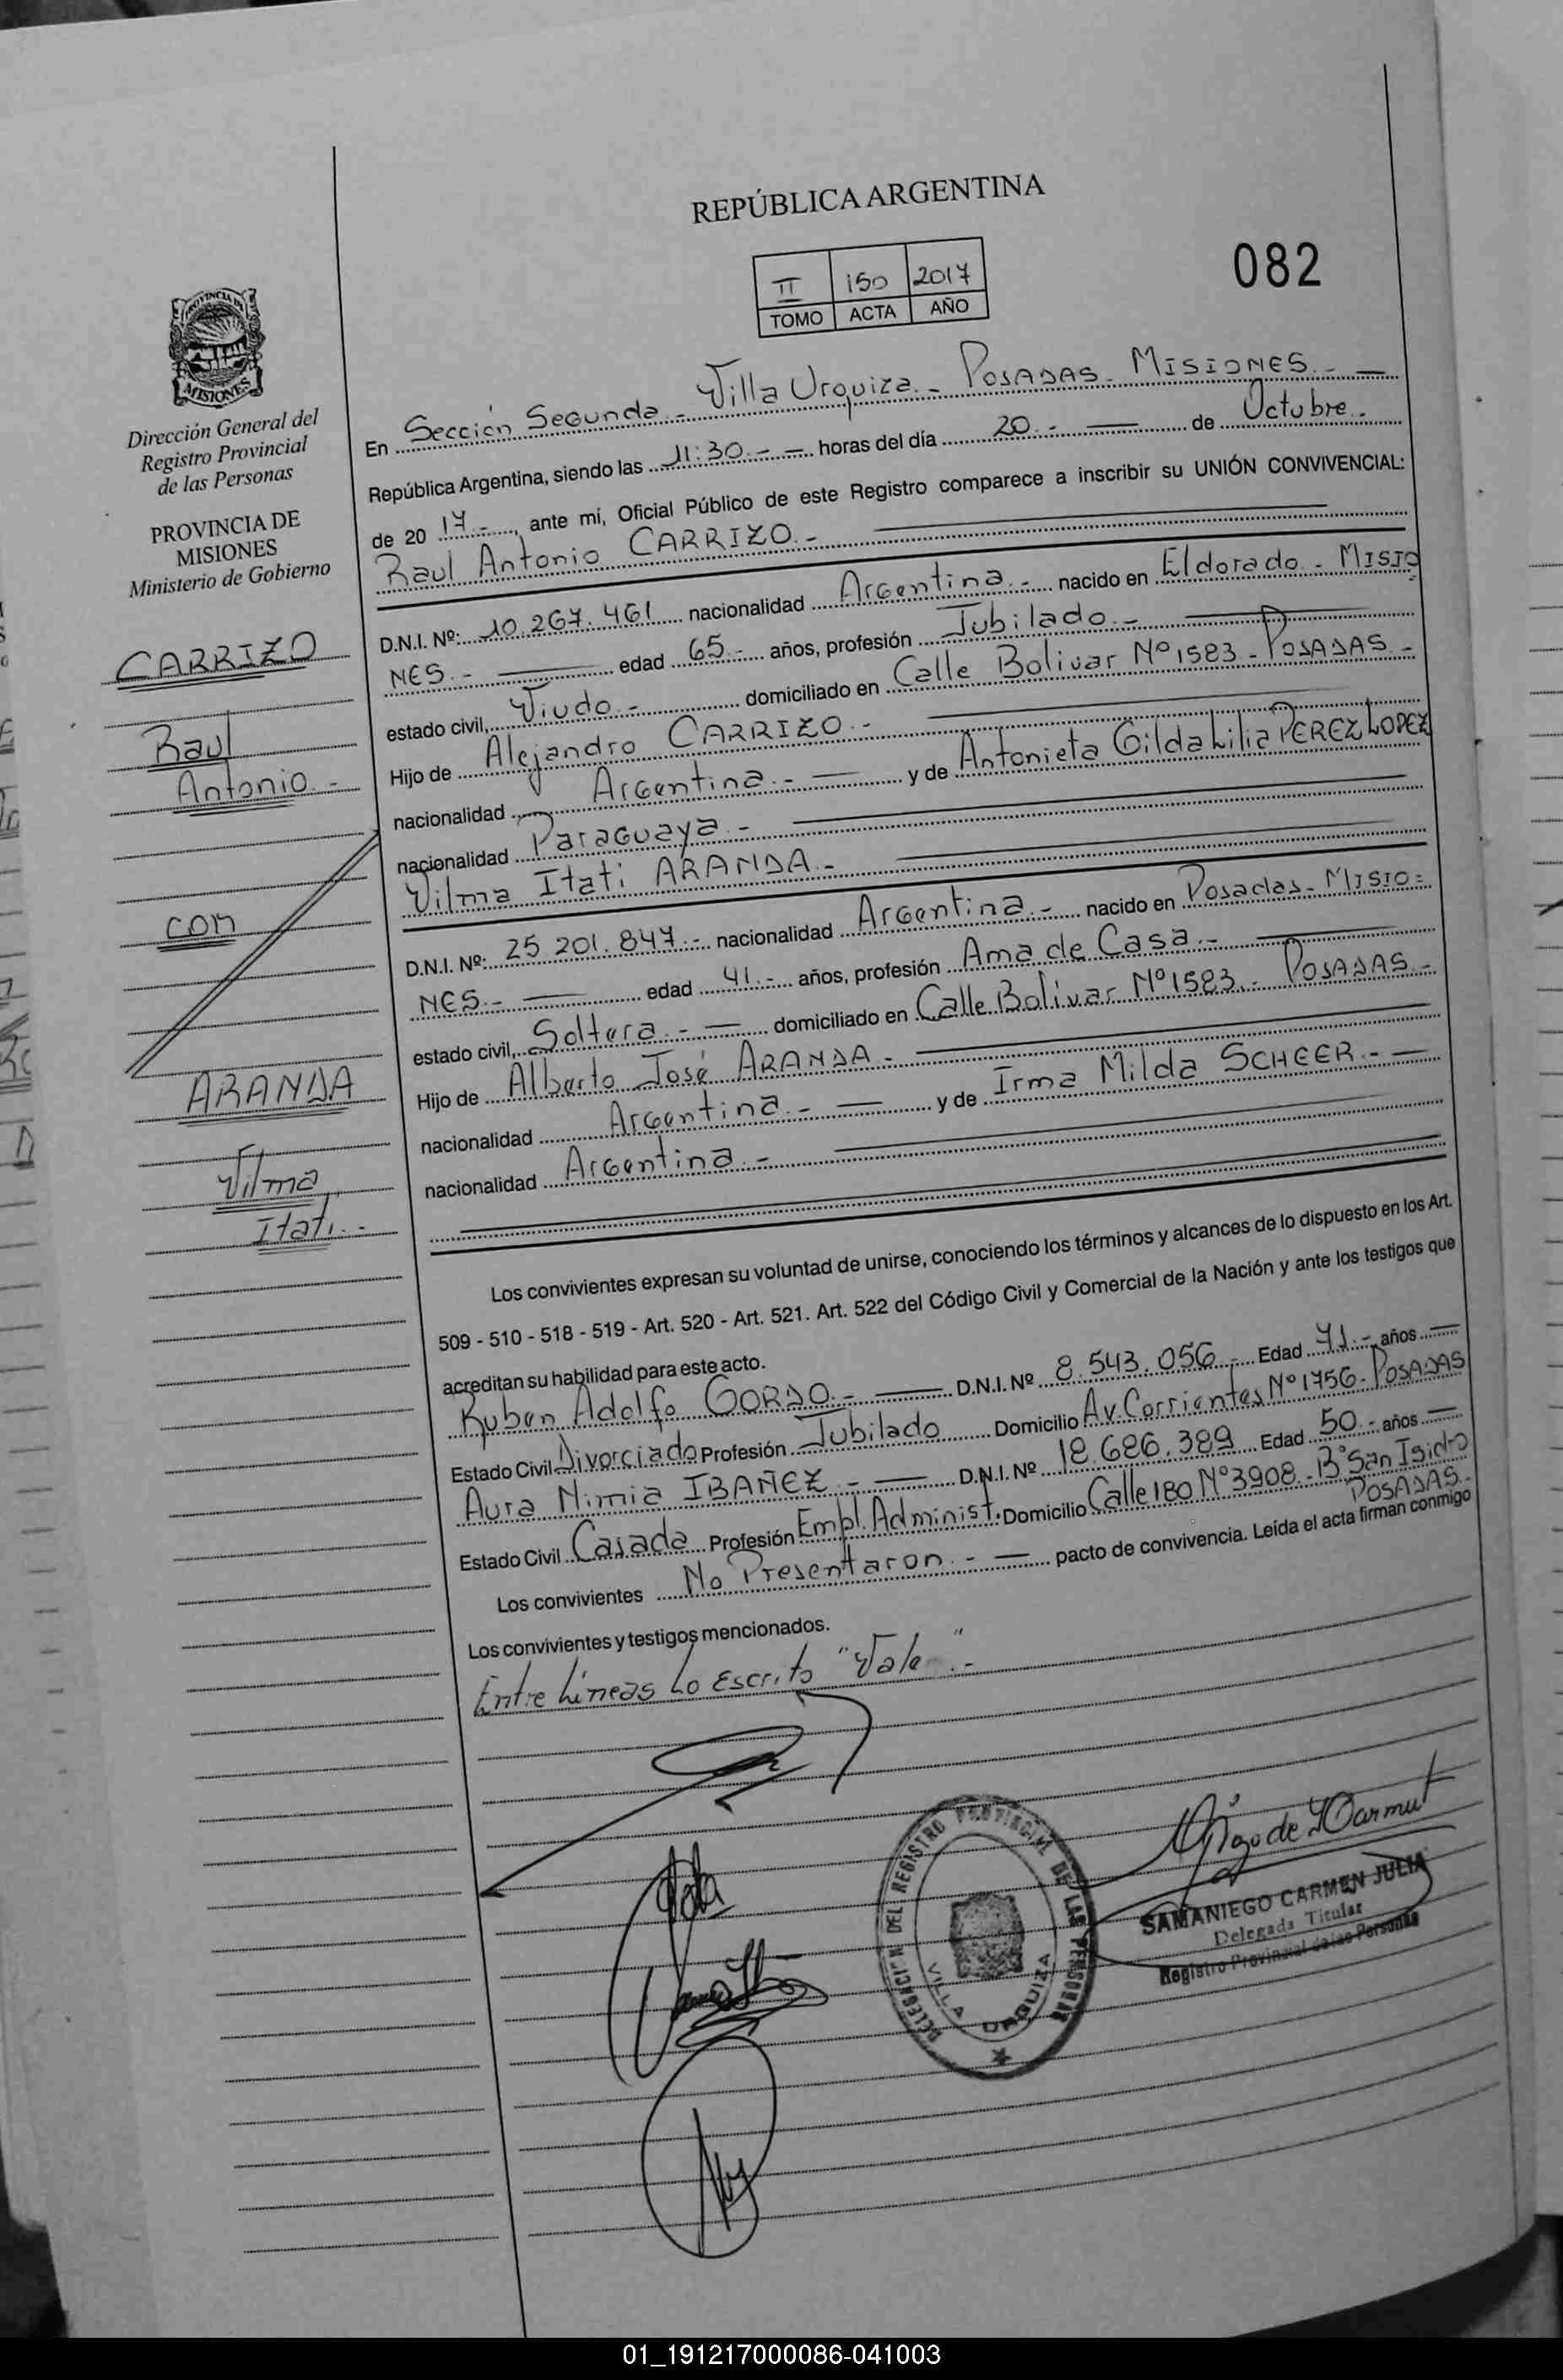 REPÚBLICA ARGENTINA
082
II 150 2017
TOMO ACTA AÑO
PROVINCIA DE
MISIONES
Dirección General del
Registro Provincial
de las Personas
PROVINCIA DE
MISIONES
Ministerio de Gobierno
CARRIZO
Raul
Antonio.-
con
ARANDA
Vilma
Itati.-
En Sección Segunda.- Villa Urquiza.- POSADAS- MISIONES.-
República Argentina, siendo las 11:30.- horas del día 20.- de Octubre.-
de 20 17.-, ante mí, Oficial Público de este Registro comparece a inscribir su UNIÓN CONVIVENCIAL:
Raul Antonio CARRIZO.-
D.N.I. Nº: 10.267.461 nacionalidad Argentina.- nacido en Eldorado.- MISIO
NES.- edad 65.- años, profesión Jubilado.-
estado civil, Viudo.- domiciliado en Calle Bolivar Nº 1583-POSADAS.-
Hijo de Alejandro CARRIZO.-
nacionalidad Argentina.- y de Antonieta Gilda Lilia PEREZ LOPEZ
nacionalidad Paraguaya.-
Vilma Itati ARANDA.-
D.N.I. Nº: 25 201.847.- nacionalidad Argentina.- nacido en Posadas- MISIO=
NES.- edad 41.- años, profesión Ama de Casa.-
estado civil, Soltera.- domiciliado en Calle Bolivar Nº 1583.- POSADAS.-
Hijo de Alberto José ARANDA.-
nacionalidad Argentina.- y de Irma Milda SCHEER.-
nacionalidad Argentina.-
Los convivientes expresan su voluntad de unirse, conociendo los términos y alcances de lo dispuesto en los Art.
509 - 510 - 518 - 519 - Art. 520 - Art. 521. Art. 522 del Código Civil y Comercial de la Nación y ante los testigos que
acreditan su habilidad para este acto.
Ruben Adolfo GORDO.- D.N.I. Nº 8.543.056.- Edad 71.- años
Estado Civil Divorciado Profesión Jubilado Domicilio Av. Corrientes Nº 1756-POSADAS
Aura Nimia IBAÑEZ.- D.N.I. Nº 18.686.389 Edad 50.- años
Estado Civil Casada Profesión Empl. Administ. Domicilio Calle 180 Nº 3908.-Bº San Isidro
POSADAS.-
Los convivientes No Presentaron.- pacto de convivencia. Leída el acta firman conmigo
Los convivientes y testigos mencionados.
Entre Líneas Lo Escrito "Vale".-
DELEGACION DEL REGISTRO PROVINCIAL DE LAS PERSONAS
VILLA URQUIZA
SAMANIEGO CARMEN JULIA
Delegada Titular
Registro Provincial de las Personas
01_191217000086-041003